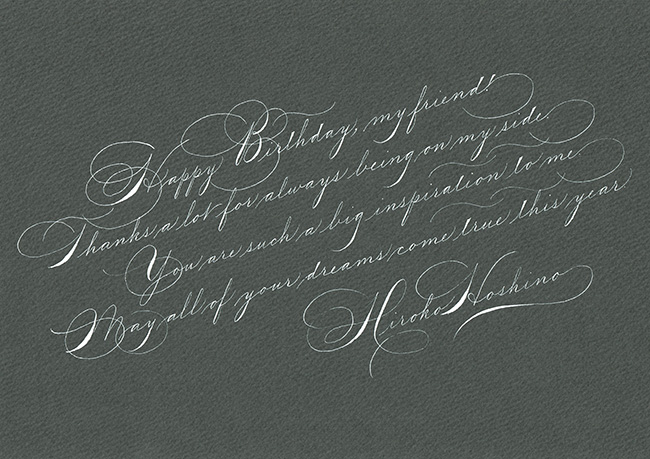 Happy Birthday, my friend!
Thanks a lot for always being on my side.
You are such a big inspiration to me.
May all of your dreams come true this year.
Hiroko Hoshino